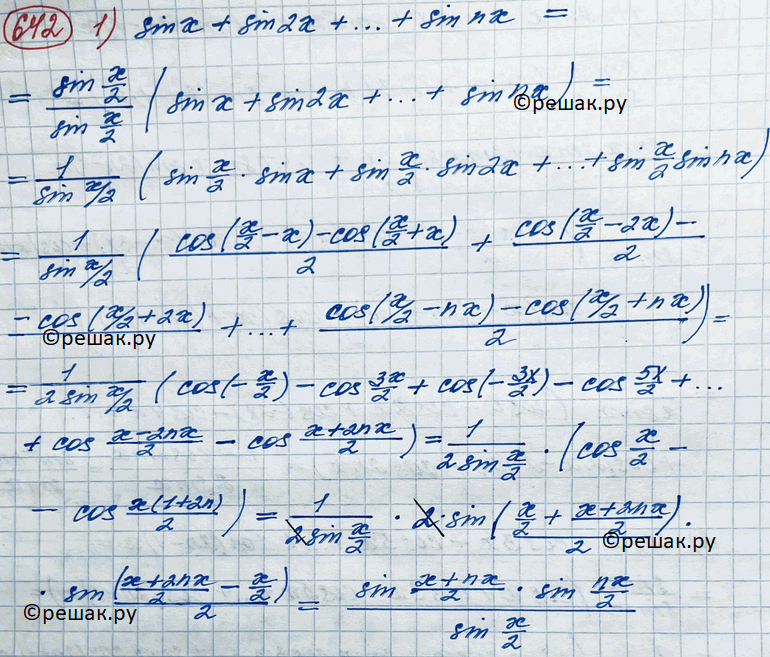 642 1) sin x + sin 2x + ... + sin nx =
= sin x/2 / sin x/2 ( sin x + sin 2x + ... + sin nx ) =
©решак.ру
= 1 / sin x/2 ( sin x/2 · sin x + sin x/2 · sin 2x + ... + sin x/2 sin nx )
= 1 / sin x/2 ( cos(x/2 - x) - cos(x/2 + x) / 2 + cos(x/2 - 2x) - / 2
- cos(x/2 + 2x) + ... + cos(x/2 - nx) - cos(x/2 + nx) / 2 ) =
©решак.ру
= 1 / 2 sin x/2 ( cos(-x/2) - cos 3x/2 + cos(-3x/2) - cos 5x/2 + ...
+ cos x-2nx/2 - cos x+2nx/2 ) = 1 / 2 sin x/2 · ( cos x/2 -
- cos x(1+2n)/2 ) = 1 / 2 sin x/2 · 2 · sin ( x/2 + x+2nx/2 ) / 2 ·
©решак.ру
· sin ( x+2nx/2 - x/2 ) / 2 = sin x+nx/2 · sin nx/2 / sin x/2
©решак.ру